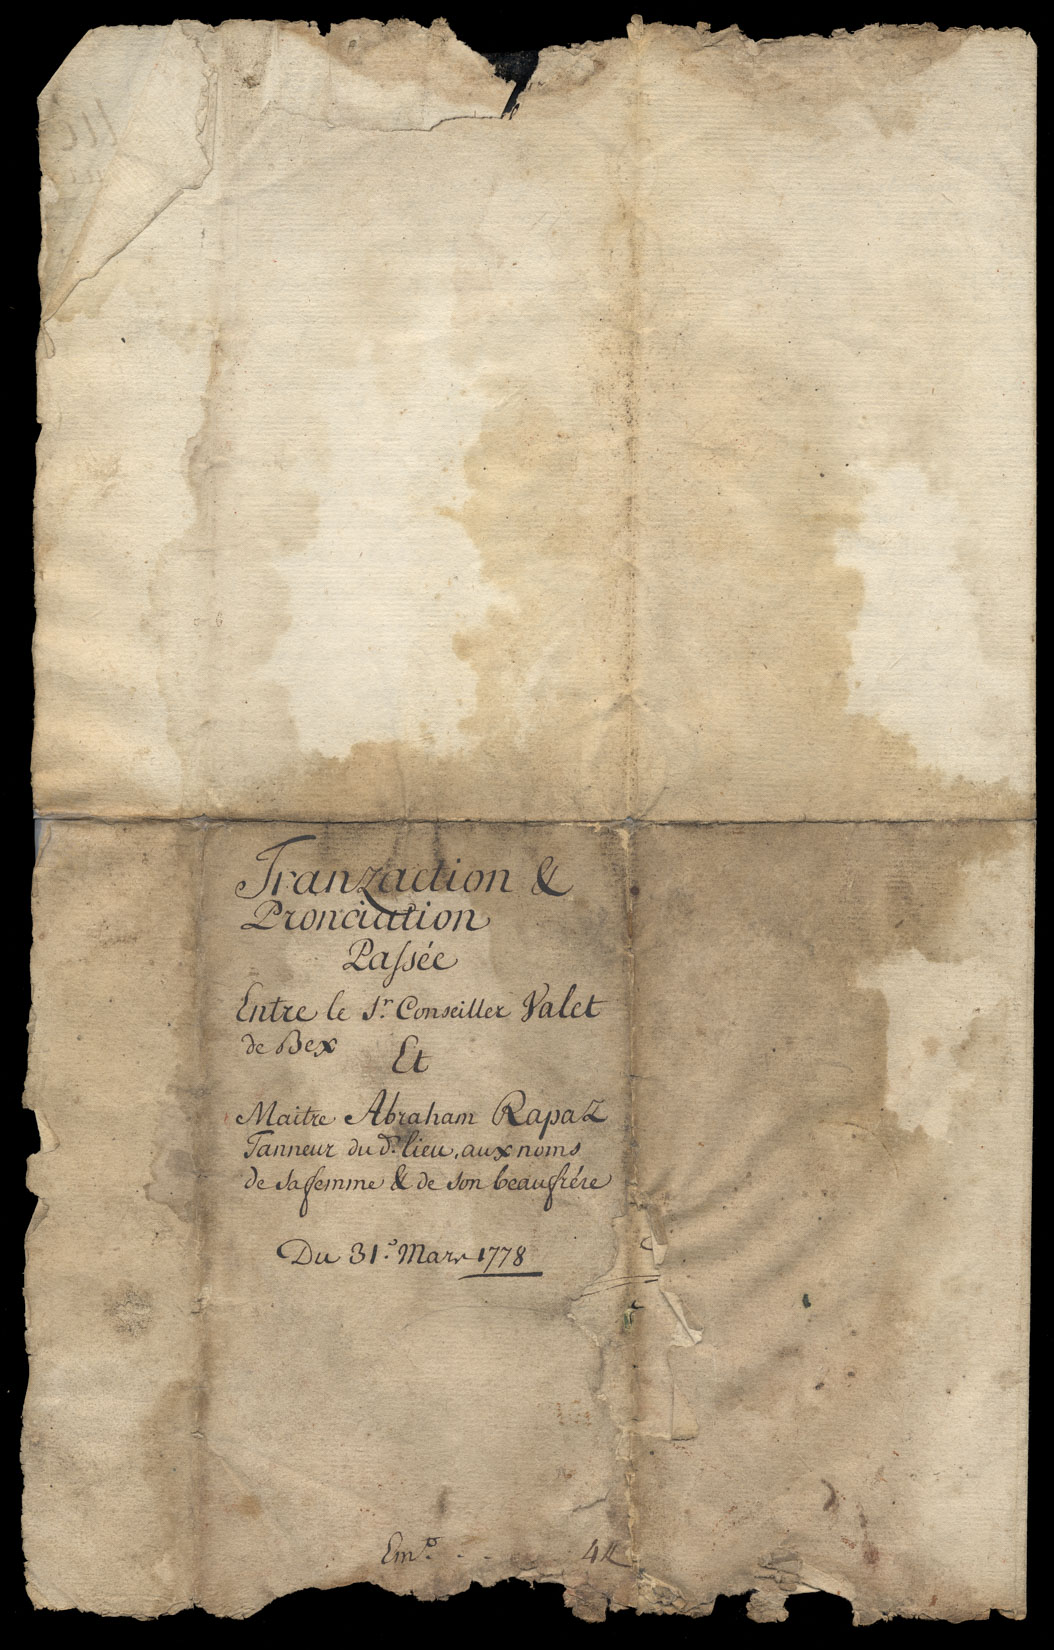 Tranzaction &
Pronciation
Passée
Entre le Sr. Conseiller Valet
de Bex Et
Maitre Abraham Rapaz
Tanneur du d. lieu, aux noms
de sa femme & de son beaufrére
Du 31e. Mars 1778